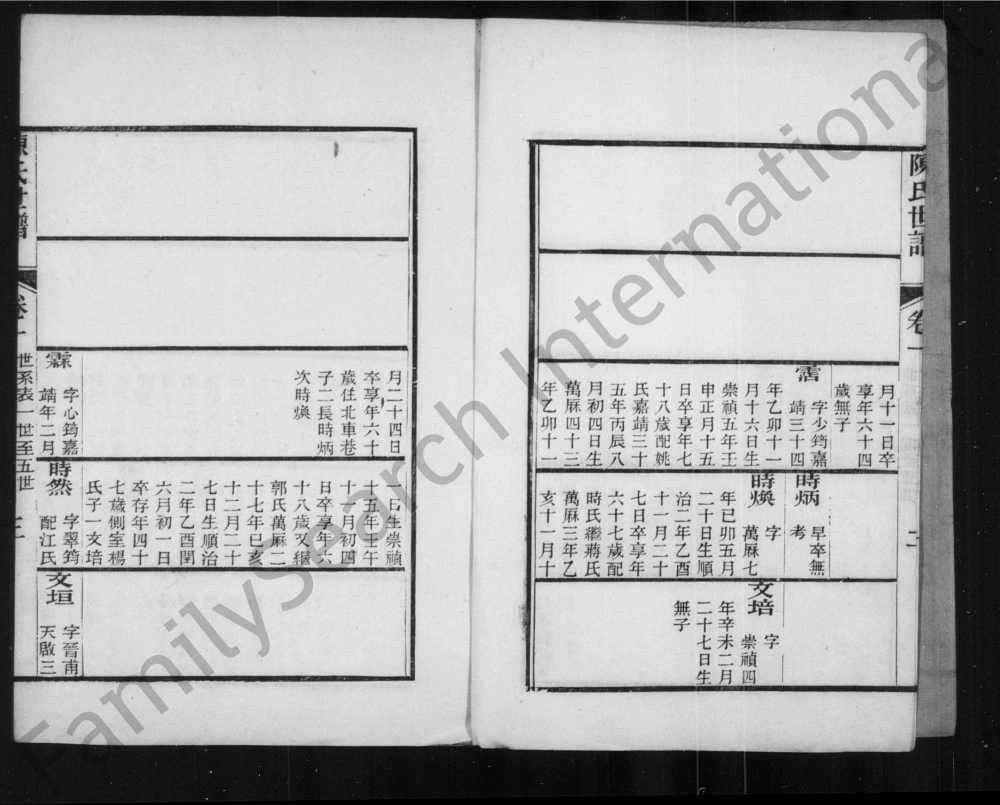 陳氏世譜
卷一
月十一日卒
享年六十四
歲無子
霑
字少筠嘉
靖三十四
年乙卯十一
月十六日生
崇禎五年壬
申正月十五
日卒享年七
十八歲配姚
氏嘉靖三十
五年丙辰八
月初四日生
萬厤四十三
年乙卯十一
時炳
早卒無
考
時煥
字
萬厤七
年己卯五月
二十日生順
治二年乙酉
十一月二十
七日卒享年
六十七歲配
時氏繼蔣氏
萬厤三年乙
亥十一月十
文培
字
崇禎四
年辛未二月
二十七日生
無子
月二十四日
卒享年六十
歲住北車巷
子二長時炳
次時煥
霖
字心筠嘉
靖年二月
日生崇禎
十五年壬午
十一月初四
日卒享年六
十八歲又繼
郭氏萬厤二
十七年己亥
十二月二十
七日生順治
二年乙酉閏
六月初一日
卒存年四十
七歲側室楊
氏子一文培
時然
字翠筠
配江氏
文垣
字晉甫
天啟三
陳氏世譜
卷一
世系表一世至五世